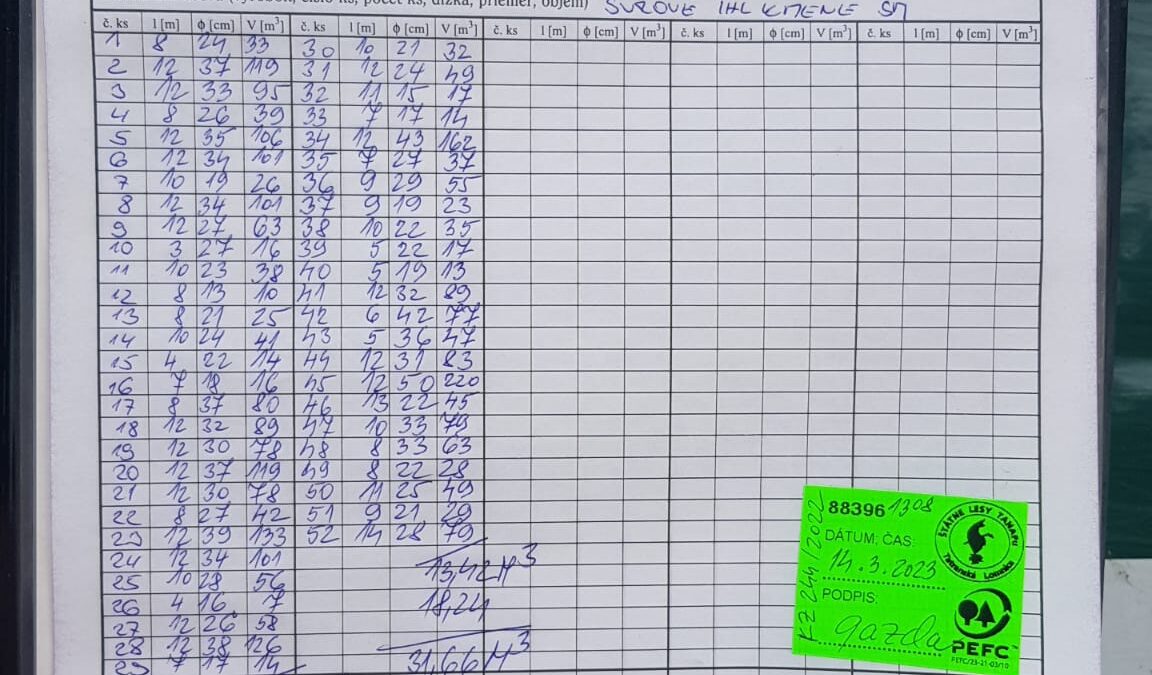 SUROVÉ IHL KMENE SM
č. ks l [m] ϕ [cm] V [m³] č. ks l [m] ϕ [cm] V [m³] č. ks l [m] ϕ [cm] V [m³] č. ks l [m] ϕ [cm] V [m³] č. ks l [m] ϕ [cm] V [m³]
1 8 24 33 30 10 21 32
2 12 37 119 31 12 24 49
3 12 33 95 32 11 15 17
4 8 26 39 33 7 17 14
5 12 35 106 34 12 43 162
6 12 34 101 35 7 27 37
7 10 19 26 36 9 29 55
8 12 34 101 37 9 19 23
9 12 27 63 38 10 22 35
10 3 27 16 39 5 22 17
11 10 23 38 40 5 19 13
12 8 13 10 41 12 32 89
13 8 21 25 42 6 42 77
14 10 24 41 43 5 36 47
15 4 22 14 44 12 31 83
16 7 18 16 45 12 50 220
17 8 37 80 46 13 22 45
18 12 32 89 47 10 33 79
19 12 30 78 48 8 33 63
20 12 37 119 49 8 22 28
21 12 30 78 50 11 25 49
22 8 27 42 51 9 21 29
23 12 39 133 52 14 28 79
24 12 34 101
25 10 28 56
13,42 M³
26 4 16 7
18,24
27 12 26 58
28 12 38 126
29 7 17 14
31,66 M³
88396 1308
DÁTUM, ČAS:
14.3.2023
PODPIS:
gazda
KZ 244/2022
ŠTÁTNE LESY TANAPU
Tatranská Lomnica
PEFC™
PEFC/23-21-03/10